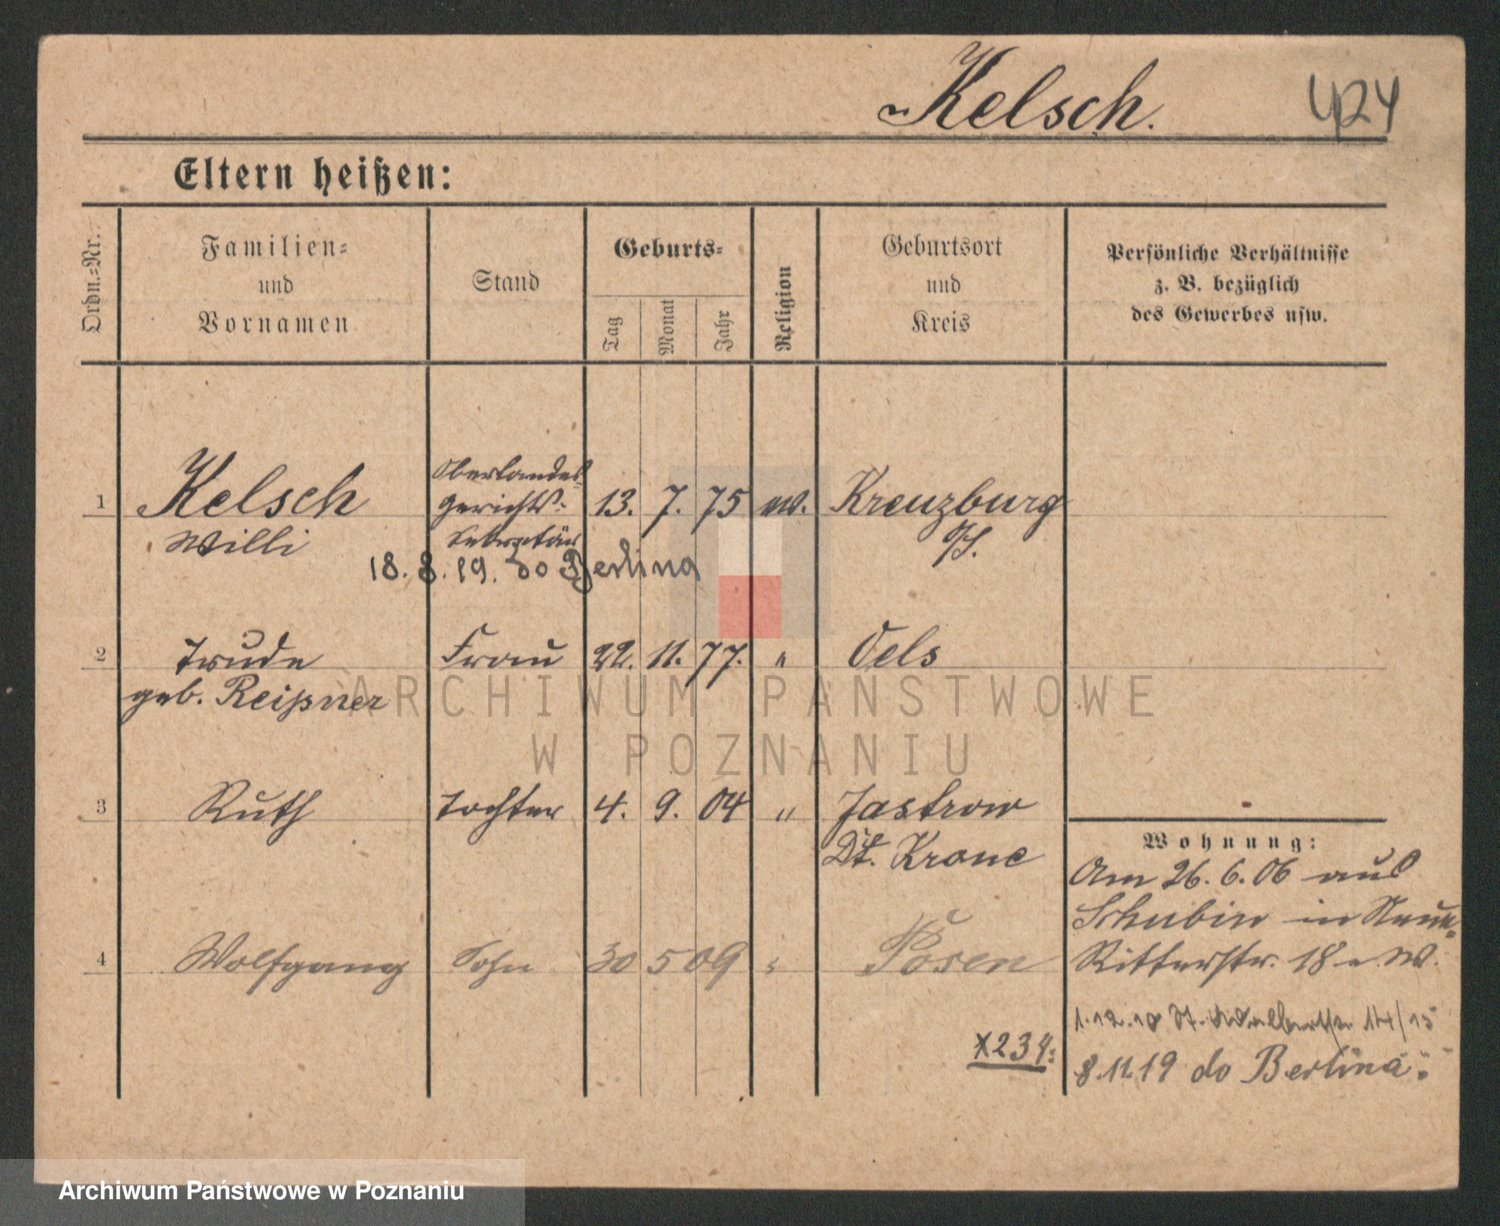 Kelsch.
424
Eltern heißen:
Ordn.=Nr.
Familien=
und
Vornamen
Stand
Geburts=
Tag
Monat
Jahr
Religion
Geburtsort
und
Kreis
Persönliche Verhältnisse
z. B. bezüglich
des Gewerbes usw.
Oberlandes-
1 Kelsch gerichts- 13. 7. 75 ev. Kreuzburg
Willi Sekretär
18. 8. 19. do Berlina
2 Trude Frau 22. 11. 77. " Oels
geb. Reißner
ARCHIWUM PAŃSTWOWE
W POZNANIU
3 Ruth Tochter 4. 9. 04 " Jastrow
Dt. Krone
Wohnung:
Am 26. 6. 06 aus
Schubin in Neue
4 Wolfgang Sohn 30 5 09 " Posen
Ritterstr. 18 e. W.
1.12.10 St. Adalbertstr 14/15
X234:
8.11.19 do Berlina:
Archiwum Państwowe w Poznaniu